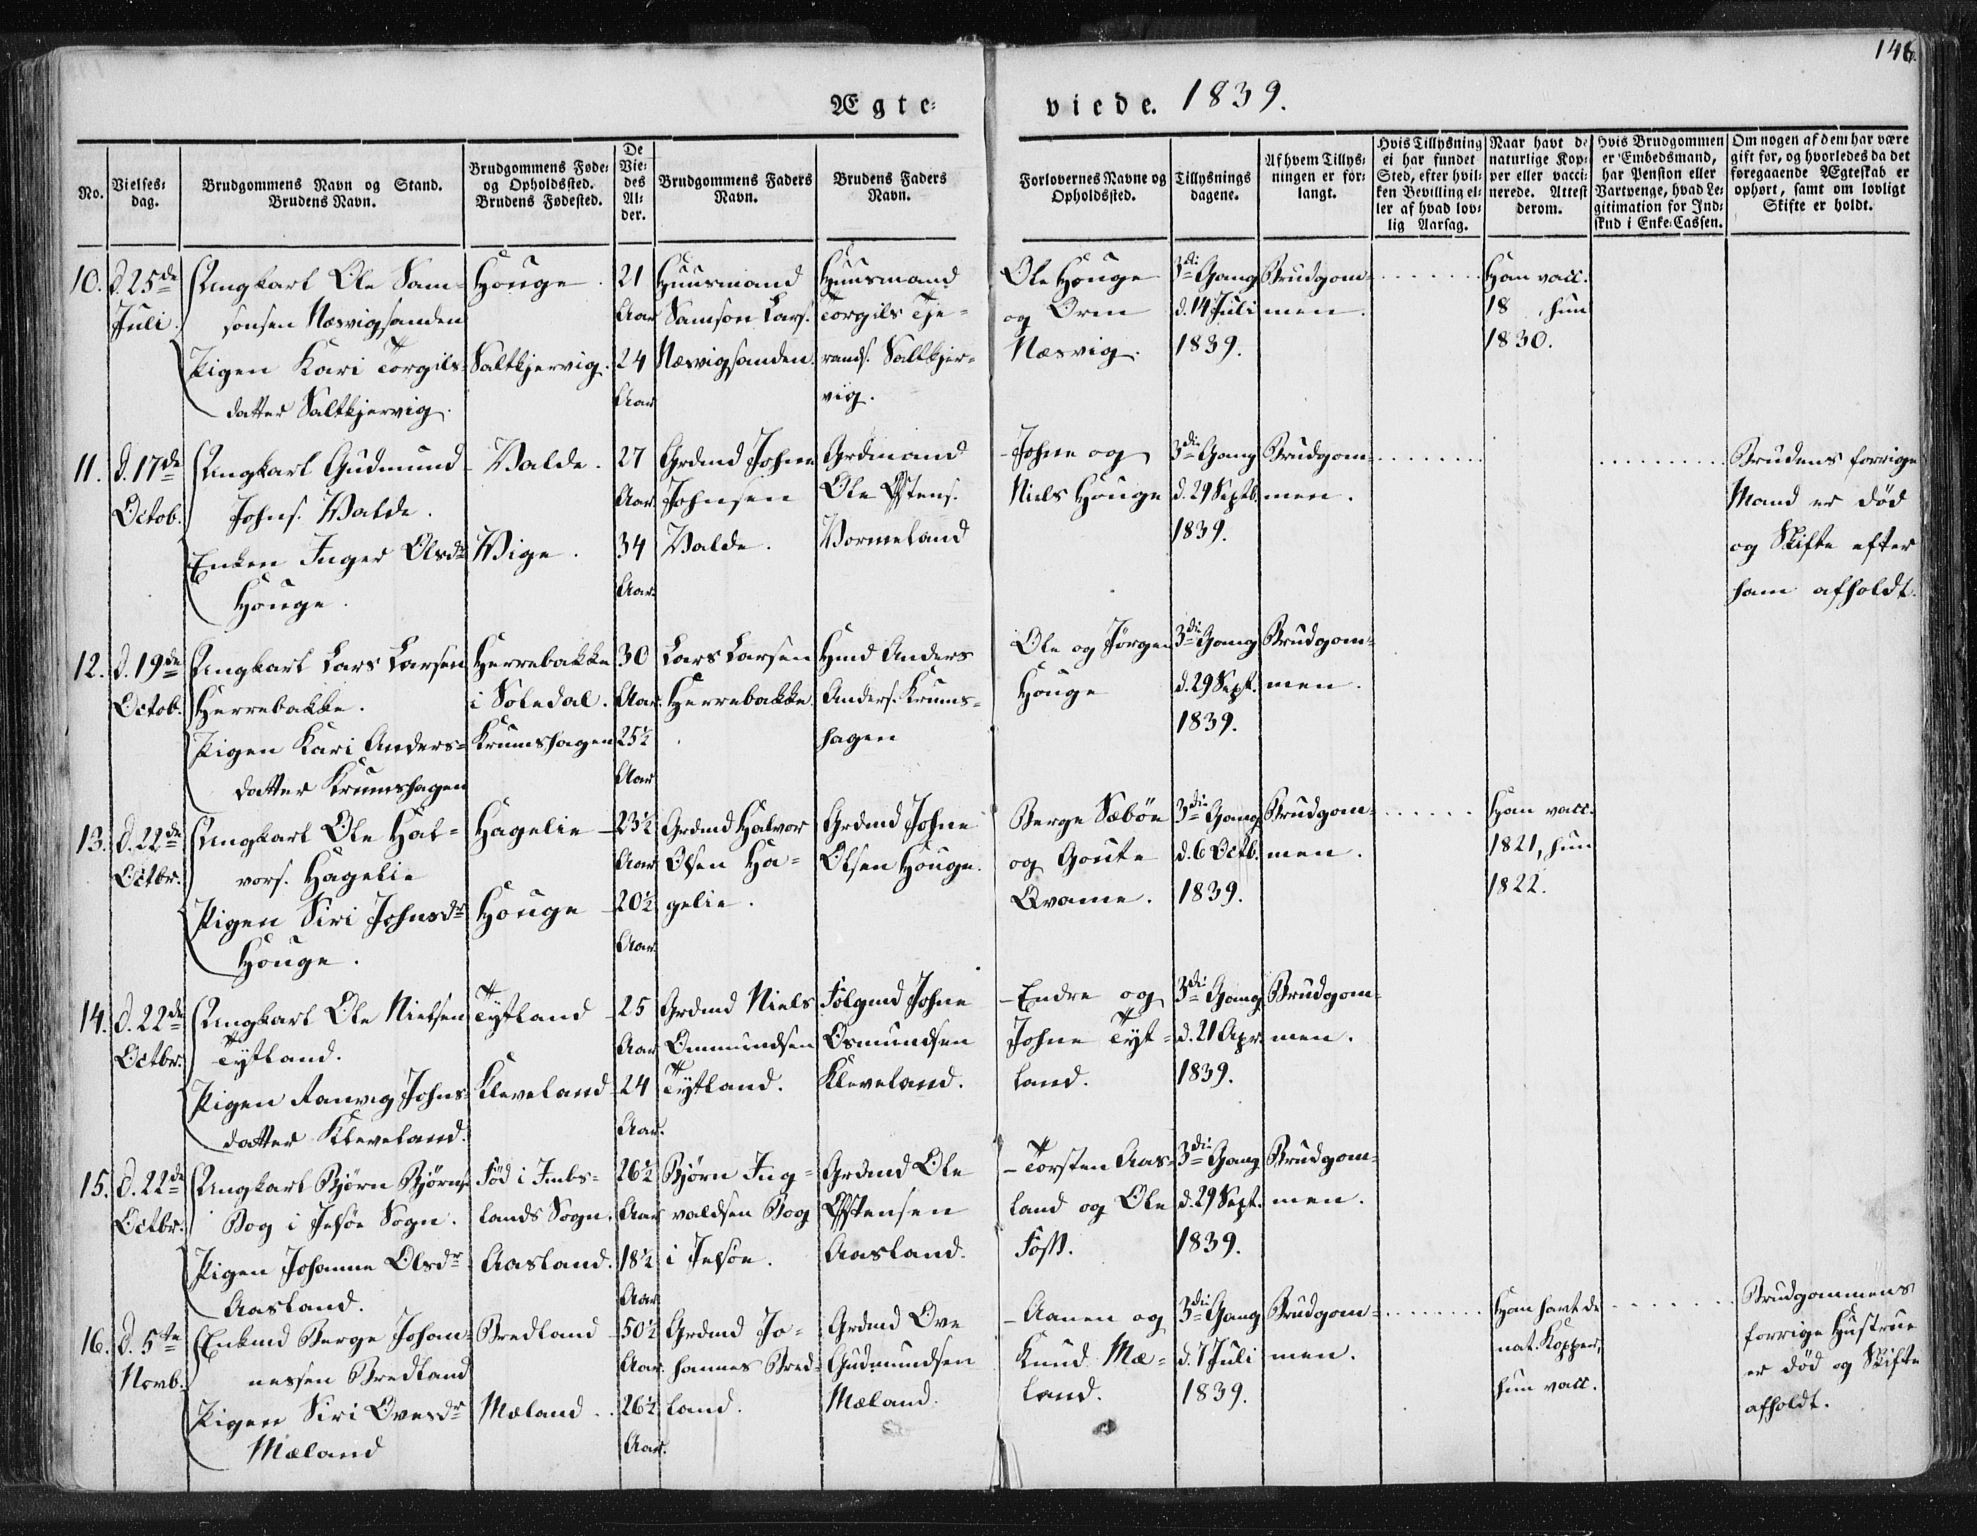 146.
Ægte=
viede. 1839.
No.
Vielses=
dag.
Brudgommens Navn og Stand.
Brudens Navn.
Brudgommens Føde=
og Opholdssted.
Brudens Fødested.
De
Vie=
des
Al=
der.
Brudgommens Faders
Navn.
Brudens Faders
Navn.
Forlovernes Navne og
Opholdssted.
Tillysnings
dagene.
Af hvem Tillys=
ningen er for=
langt.
Hvis Tillysning
ei har fundet
Sted, efter hvil=
ken Bevilling el=
ler af hvad lov=
lig Aarsag.
Naar havt de
naturlige Kop=
per eller vacci=
nerede. Attest
derom.
Hvis Brudgommen
er Embedsmand,
har Pension eller
Vartpenge, hvad Le=
gitimation for Ind=
skud i Enke=Cassen.
Om nogen af dem har være
gift før, og hvorledes da det
foregaaende Ægteskab er
ophørt, samt om lovligt
Skifte er holdt.
10.
d. 25de
Juli.
Ungkarl Ole Sam=
sonsen Næsvigsanden
Pigen Kari Torgils=
datter Saltkjervig.
Houge.
Saltkjervig.
21
Aar
24
Aar
Huusmand
Samson Lars.
Næsvigsanden.
Huusmand
Torgils Tje=
rands. Saltkjer=
vig.
Ole Houge
og Orm
Næsvig.
3di Gang
d. 14 Juli
1839.
Brudgom=
men.
Han vacc.
18 , hun
1830.
11.
d. 17de
Octob.
Ungkarl Gudmund
Johns. Valde.
Enken Inger Olsdr
Houge.
Valde.
Vige.
27
Aar.
34
Aar.
Grdmd Johne
Johnsen
Valde.
Grdmand
Ole Estens.
Vormeland
Johne og
Niels Houge
3die Gang
d. 29 Septb.
1839.
Brudgom=
men.
Brudens forrige
Mand er død
og Skifte efter
ham afholdt.
12.
d. 19de
Octob.
Ungkarl Lars Larsen
Herrebakke.
Pigen Kari Anders=
datter Krumshagen
Herrebakke
i Soledal.
Krumshagen
30
Aar.
25½
Aar
Lars Larsen
Herrebakke.
Hmd Anders
Anders. Krums=
hagen
Ole og Jørgen
Houge
3di Gang
d. 29 Sept.
1839.
Brudgom=
men.
13.
d. 22de
Octbr.
Ungkarl Ole Hal=
vors. Hagelie
Pigen Siri Johnsdr
Houge.
Hagelie
Houge
23½
Aar
20½
Aar.
Grdmd Halvor
Olsen Ha=
gelie.
Grdmd Johne
Olsen Houge.
Berge Sæbøe
og Goute
Qvame.
3die Gang
d. 6 Octb.
1839.
Brudgom=
men.
Han vacc.
1821, hun
1822.
14.
d. 22de
Octbr.
Ungkarl Ole Nielsen
Tytland.
Pigen Ranveg Johns=
datter Kleveland.
Tytland
Kleveland
25
Aar
24
Aar.
Grdmd Niels
Ommundsen
Tytland.
Folgmd Johne
Osmundsen
Kleveland.
Endre og
Johne Tyt=
land.
3di Gang
d. 21 Apr.
1839.
Brudgom=
men.
15.
d. 22de
Octbr.
Ungkarl Bjørn Bjørns.
Bog i Jelsøe Sogn.
Pigen Johanne Olsdr
Aasland.
Fød i Imbs=
lands Sogn.
Aasland.
26½
Aar
18½
Aar
Bjørn Ing=
valdsen Bog
i Jelsøe.
Grdmd Ole
Estensen
Aasland.
Torsten Aas=
land og Ole
Foss.
3die Gang
d. 29 Sept.
1839.
Brudgom=
men.
16.
d. 5te
Novb.
Enkmd Berge Johan=
nessen Bredland
Pigen Siri Ovesdr
Mæland
Bredland
Mæland.
50½
Aar.
26½
Aar.
Grdmd Jo=
hannes Bred=
land.
Grdmd Ove
Gudmundsen
Mæland.
Aanen og
Knud Mæ=
land.
3die Gang
d. 7 Juli
1839.
Brudgom=
men.
Han havt de
nat. Kopper,
hun vacc.
Brudgommens
forrige Hustrue
er død og Skifte
afholdt.